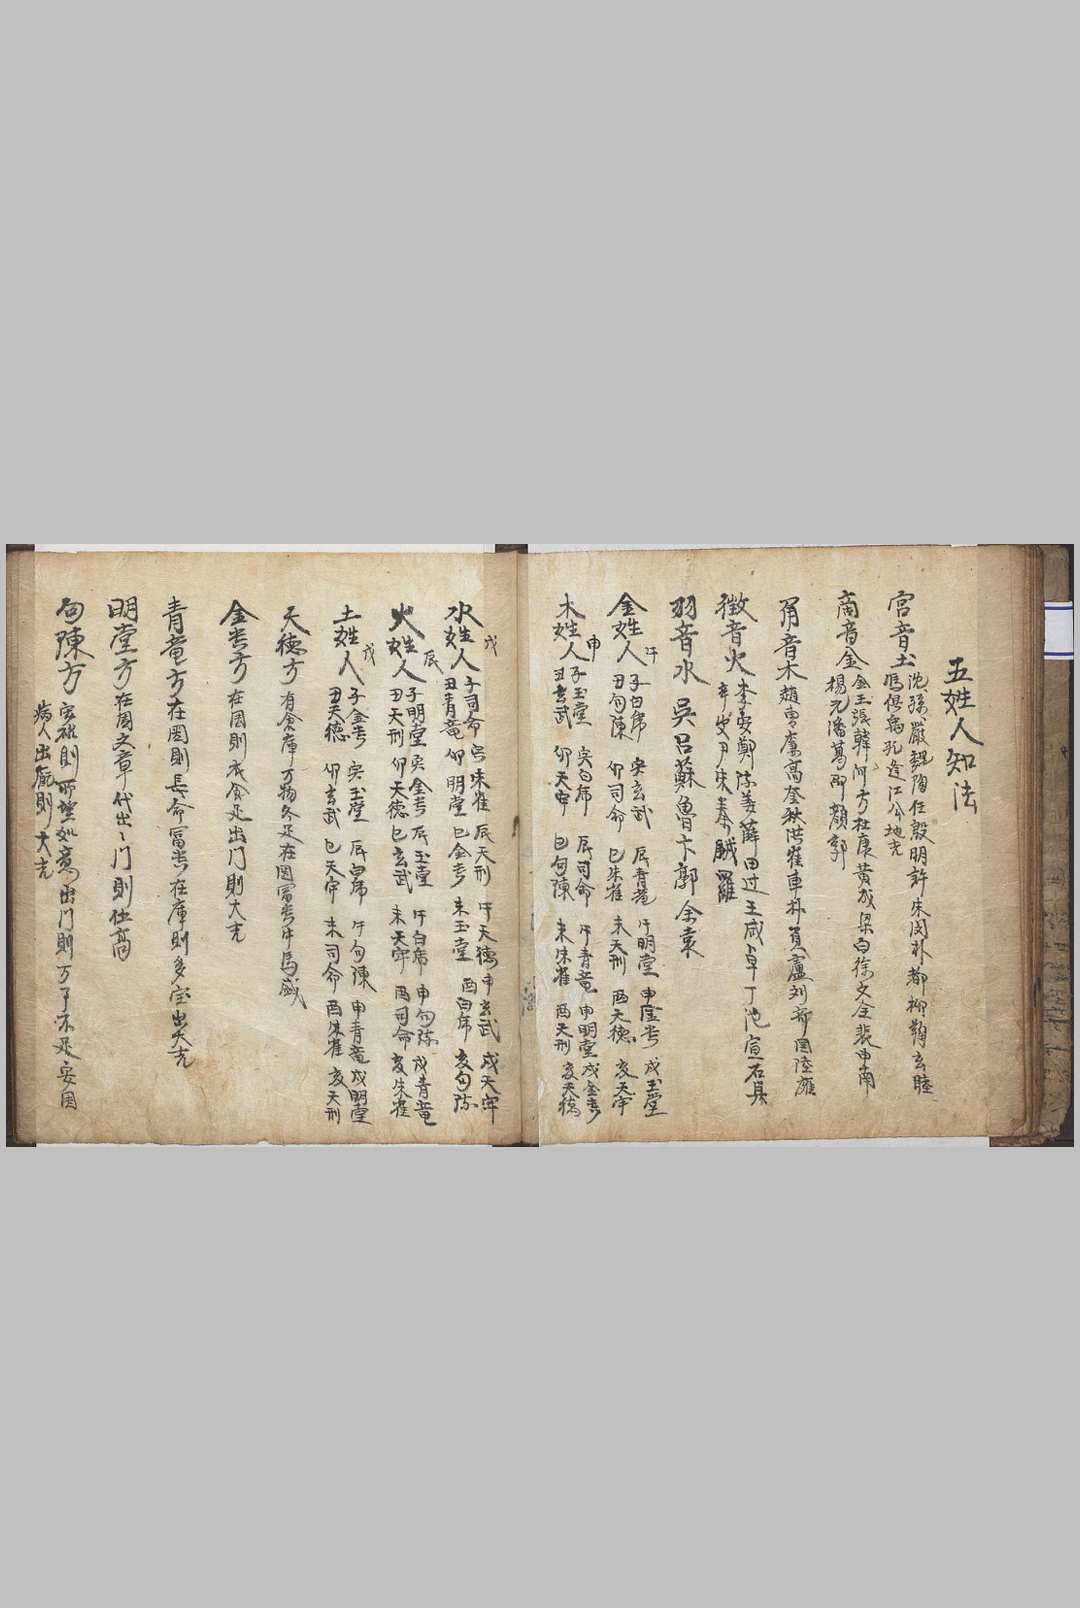 五姓人知法
宮音土 沈孫嚴魏陶任殷明許朱閔朴都柳鞠玄睦
馮偶 孔逢江 地
商音金 金玉張韓何方杜康黄成梁白徐文全裴申南
楊元潘葛 顔郭
角音木 趙曺廉高 秋洪崔車朴 盧刘 陸
徵音火 李安鄭陳姜薛田边王咸卓丁池宣石具
辛史尹朱秦 羅
羽音水 吳呂蘇魯卞郭余袁
金姓人 午 子白帍 寅玄武 辰青竜 午明堂 申金 戌玉堂
丑句陳 卯司命 巳朱雀 未天刑 酉天徳 亥天牢
木姓人 申 子玉堂 寅白帍 辰司命 午青竜 申明堂 戌金
丑玄武 卯天牢 巳句陳 未朱雀 酉天刑 亥天徳
水姓人 戌 子司命 寅朱雀 辰天刑 午天徳 申玄武 戌天牢
丑青竜 卯明堂 巳金 未玉堂 酉白帍 亥句陳
火姓人 辰 子明堂 寅金 辰玉堂 午白帍 申句陳 戌青竜
丑天刑 卯天徳 巳玄武 未天牢 酉司命 亥朱雀
土姓人 戌 子金 寅玉堂 辰白帍 午句陳 申青竜 戌明堂
丑天徳 卯玄武 巳天牢 未司命 酉朱雀 亥天刑
天徳方 有倉庫万物冬足在囷冨 牛馬盛
金 方 在囷則衣食足出门則大吉
青竜方 在囷則長命冨 在庫則多宝出大吉
明堂方 在囷文章代出〻门則仕高
句陳方 則所望如意出门則万事不足安囷
病人出 則大吉